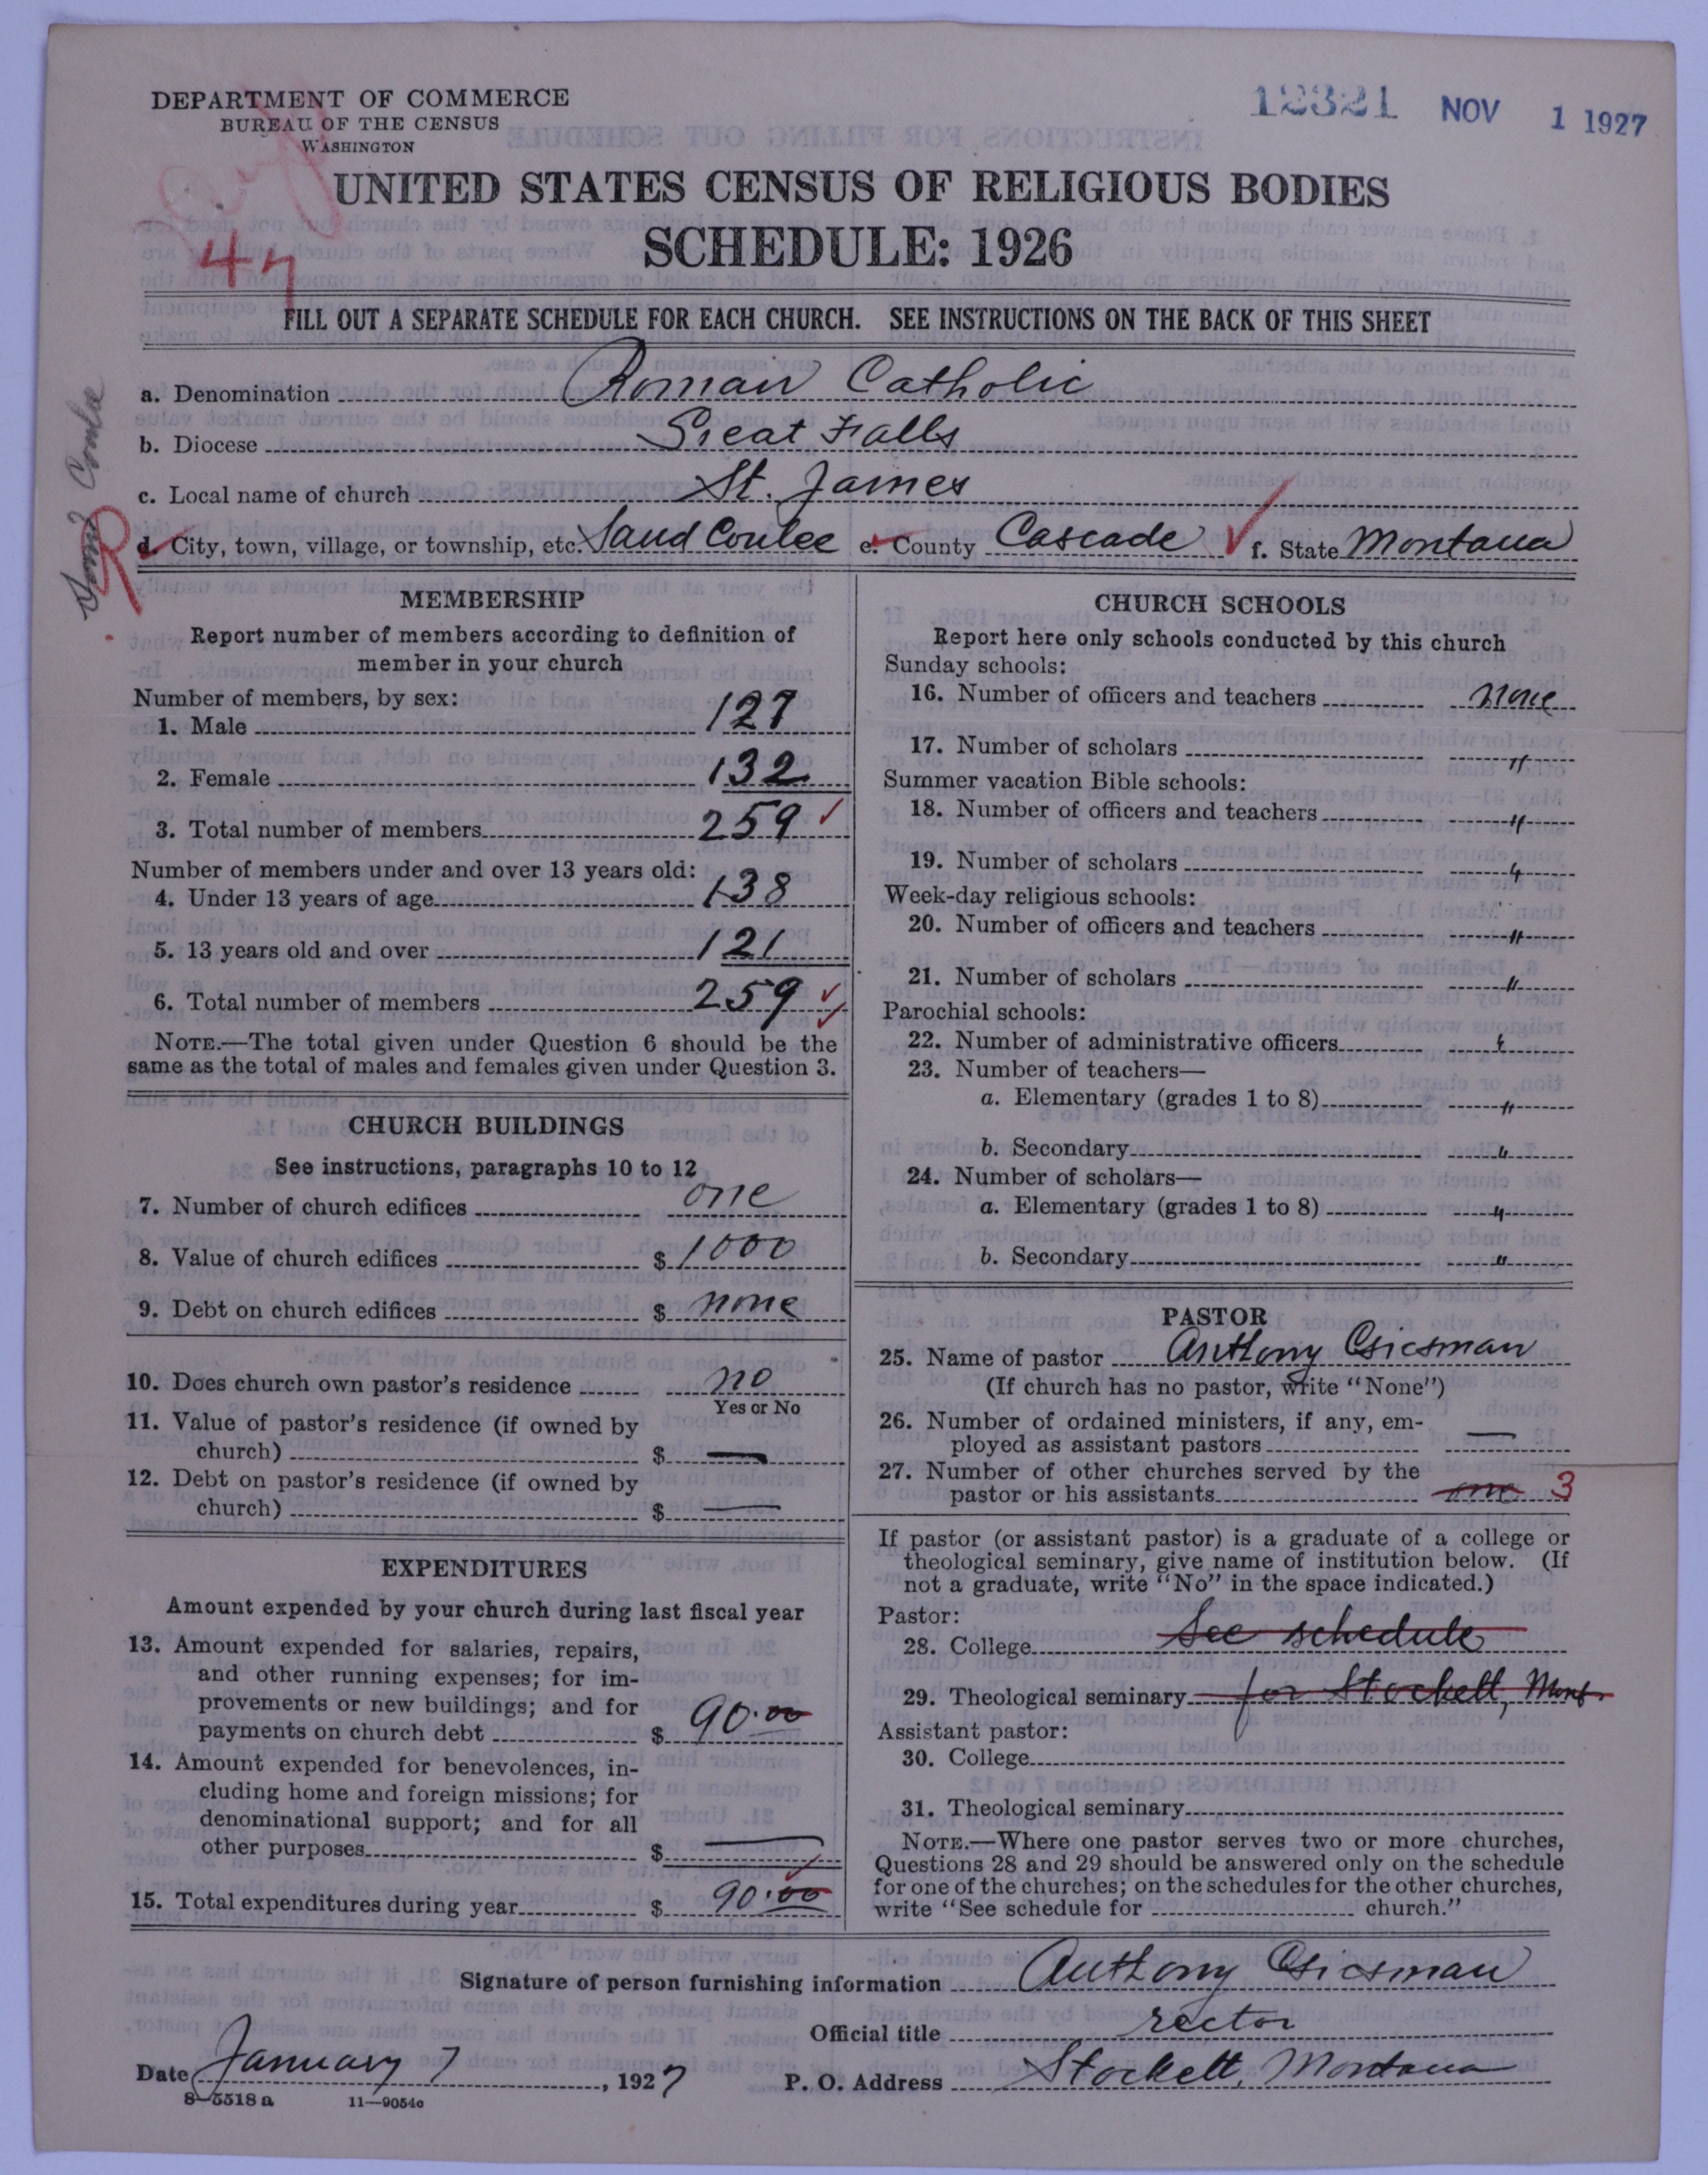 DEPARTMENT OF COMMERCE
BUREAU OF THE CENSUS
WASHINGTON
12321 NOV 1 1927
UNITED STATES CENSUS OF RELIGIOUS BODIES
SCHEDULE: 1926
FILL OUT A SEPARATE SCHEDULE FOR EACH CHURCH. SEE INSTRUCTIONS ON THE BACK OF THIS SHEET
a. Denomination Roman Catholic
b. Diocese Great Falls
c. Local name of church St. James
d. City, town, village, or township, etc. Sand Coulee e. County Cascade f. State Montana
R
MEMBERSHIP
Report number of members according to definition of
member in your church
Number of members, by sex:
1. Male 127
2. Female 132
3. Total number of members 259
Number of members under and over 13 years old:
4. Under 13 years of age 138
5. 13 years old and over 121
6. Total number of members 259
NOTE.—The total given under Question 6 should be the
same as the total of males and females given under Question 3.
CHURCH BUILDINGS
See instructions, paragraphs 10 to 12
7. Number of church edifices one
8. Value of church edifices $ 1000
9. Debt on church edifices $ none
10. Does church own pastor's residence no
Yes or No
11. Value of pastor's residence (if owned by
church) $ —
12. Debt on pastor's residence (if owned by
church) $ —
EXPENDITURES
Amount expended by your church during last fiscal year
13. Amount expended for salaries, repairs,
and other running expenses; for im-
provements or new buildings; and for
payments on church debt $ 90.00
14. Amount expended for benevolences, in-
cluding home and foreign missions; for
denominational support; and for all
other purposes $ —
15. Total expenditures during year $ 90.00
CHURCH SCHOOLS
Report here only schools conducted by this church
Sunday schools:
16. Number of officers and teachers none
17. Number of scholars "
Summer vacation Bible schools:
18. Number of officers and teachers "
19. Number of scholars "
Week-day religious schools:
20. Number of officers and teachers "
21. Number of scholars "
Parochial schools:
22. Number of administrative officers "
23. Number of teachers—
a. Elementary (grades 1 to 8) "
b. Secondary "
24. Number of scholars—
a. Elementary (grades 1 to 8) "
b. Secondary "
PASTOR
25. Name of pastor Anthony
(If church has no pastor, write "None")
26. Number of ordained ministers, if any, em-
ployed as assistant pastors —
27. Number of other churches served by the
pastor or his assistants one 3
If pastor (or assistant pastor) is a graduate of a college or
theological seminary, give name of institution below. (If
not a graduate, write "No" in the space indicated.)
Pastor:
28. College See schedule
29. Theological seminary for Stockett, Mont.
Assistant pastor:
30. College
31. Theological seminary
NOTE.—Where one pastor serves two or more churches,
Questions 28 and 29 should be answered only on the schedule
for one of the churches; on the schedules for the other churches,
write "See schedule for church."
Signature of person furnishing information Anthony
Official title rector
Date January 7, 1927 P. O. Address Stockett, Montana
8-5518 a 11—9054c